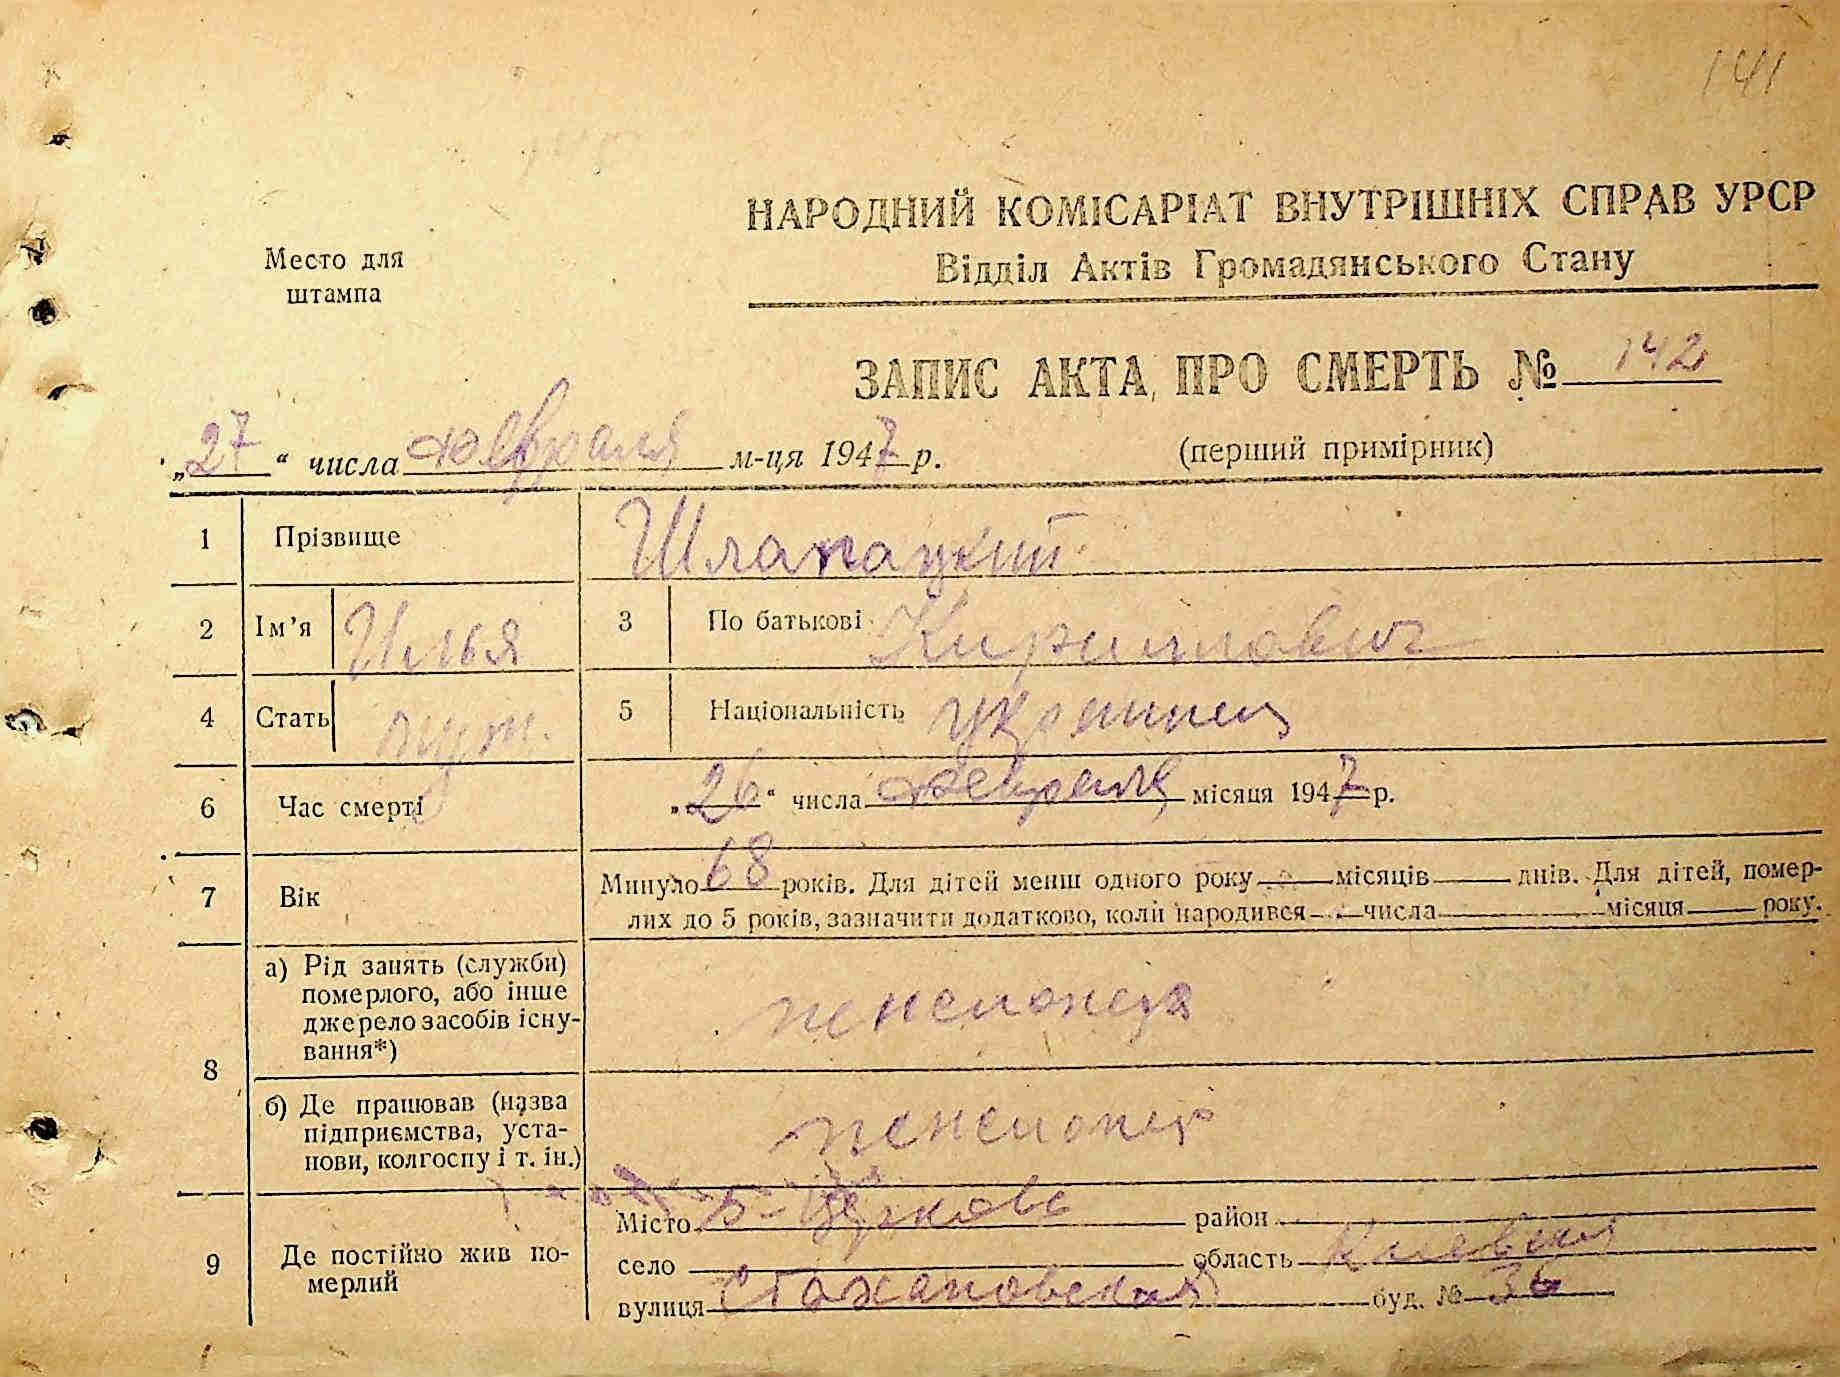 141
НАРОДНИЙ КОМІСАРІАТ ВНУТРІШНІХ СПРАВ УРСР
Відділ Актів Громадянського Стану
Место для
штампа
ЗАПИС АКТА ПРО СМЕРТЬ № 142
„27“ числа февраля м-ця 1947 р. (перший примірник)
1 Прізвище Шлапацкий
2 Ім’я Илья 3 По батькові Кириллович
4 Стать муж. 5 Національність украинец
6 Час смерті „26“ числа февраля місяця 1947 р.
7 Вік Минуло 68 років. Для дітей менш одного року місяців днів. Для дітей, помер-
лих до 5 років, зазначити додатково, коли народився числа місяця року.
8 а) Рід занять (служби)
померлого, або інше
джерело засобів існу-
вання*) пенсионер
б) Де працював (назва
підприємства, уста-
нови, колгоспу і т. ін.) пенсионер
9 Де постійно жив по-
мерлий
Місто Б-Церковь район
село область Киевская
вулиця Стахановская буд. № 36